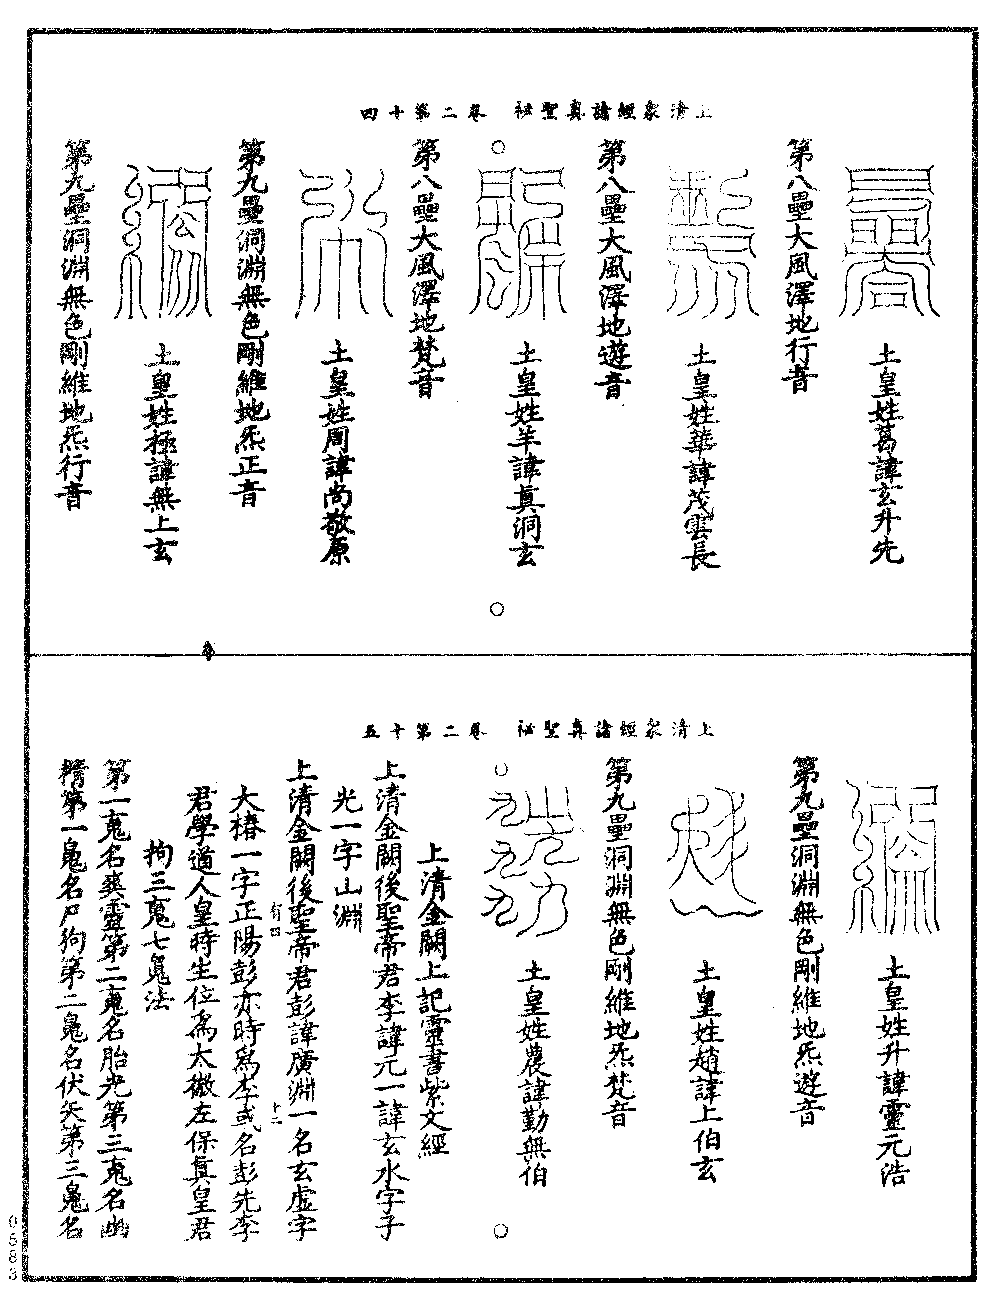 上清衆經諸真聖祕　卷二第十四
土皇姓葛諱玄升先
第八壘大風澤地行音
土皇姓華諱茂雲長
第八壘大風澤地遊音
土皇姓羊諱真洞玄
第八壘大風澤地梵音
土皇姓周諱尚敬原
第九壘洞淵無色剛維地炁正音
土皇姓極諱無上玄
第九壘洞淵無色剛維地炁行音
上清衆經諸真聖祕　卷二第十五
土皇姓升諱靈元浩
第九壘洞淵無色剛維地炁遊音
土皇姓趙諱上伯玄
第九壘洞淵無色剛維地炁梵音
土皇姓農諱勤無伯
上清金闕上記靈書紫文經
上清金闕後聖帝君李諱元一諱玄水字子
光一字山淵
上清金闕後聖帝君彭諱廣淵一名玄虛字
有四 十二
大椿一字正陽彭亦時爲李或名彭先李
君學道人皇時生位爲太微左保真皇君
拘三䰟七䰟法
第一䰟名爽靈第二䰟名胎光第三䰟名幽
精第一䰟名尸狗第二䰟名伏矢第三䰟名
0583